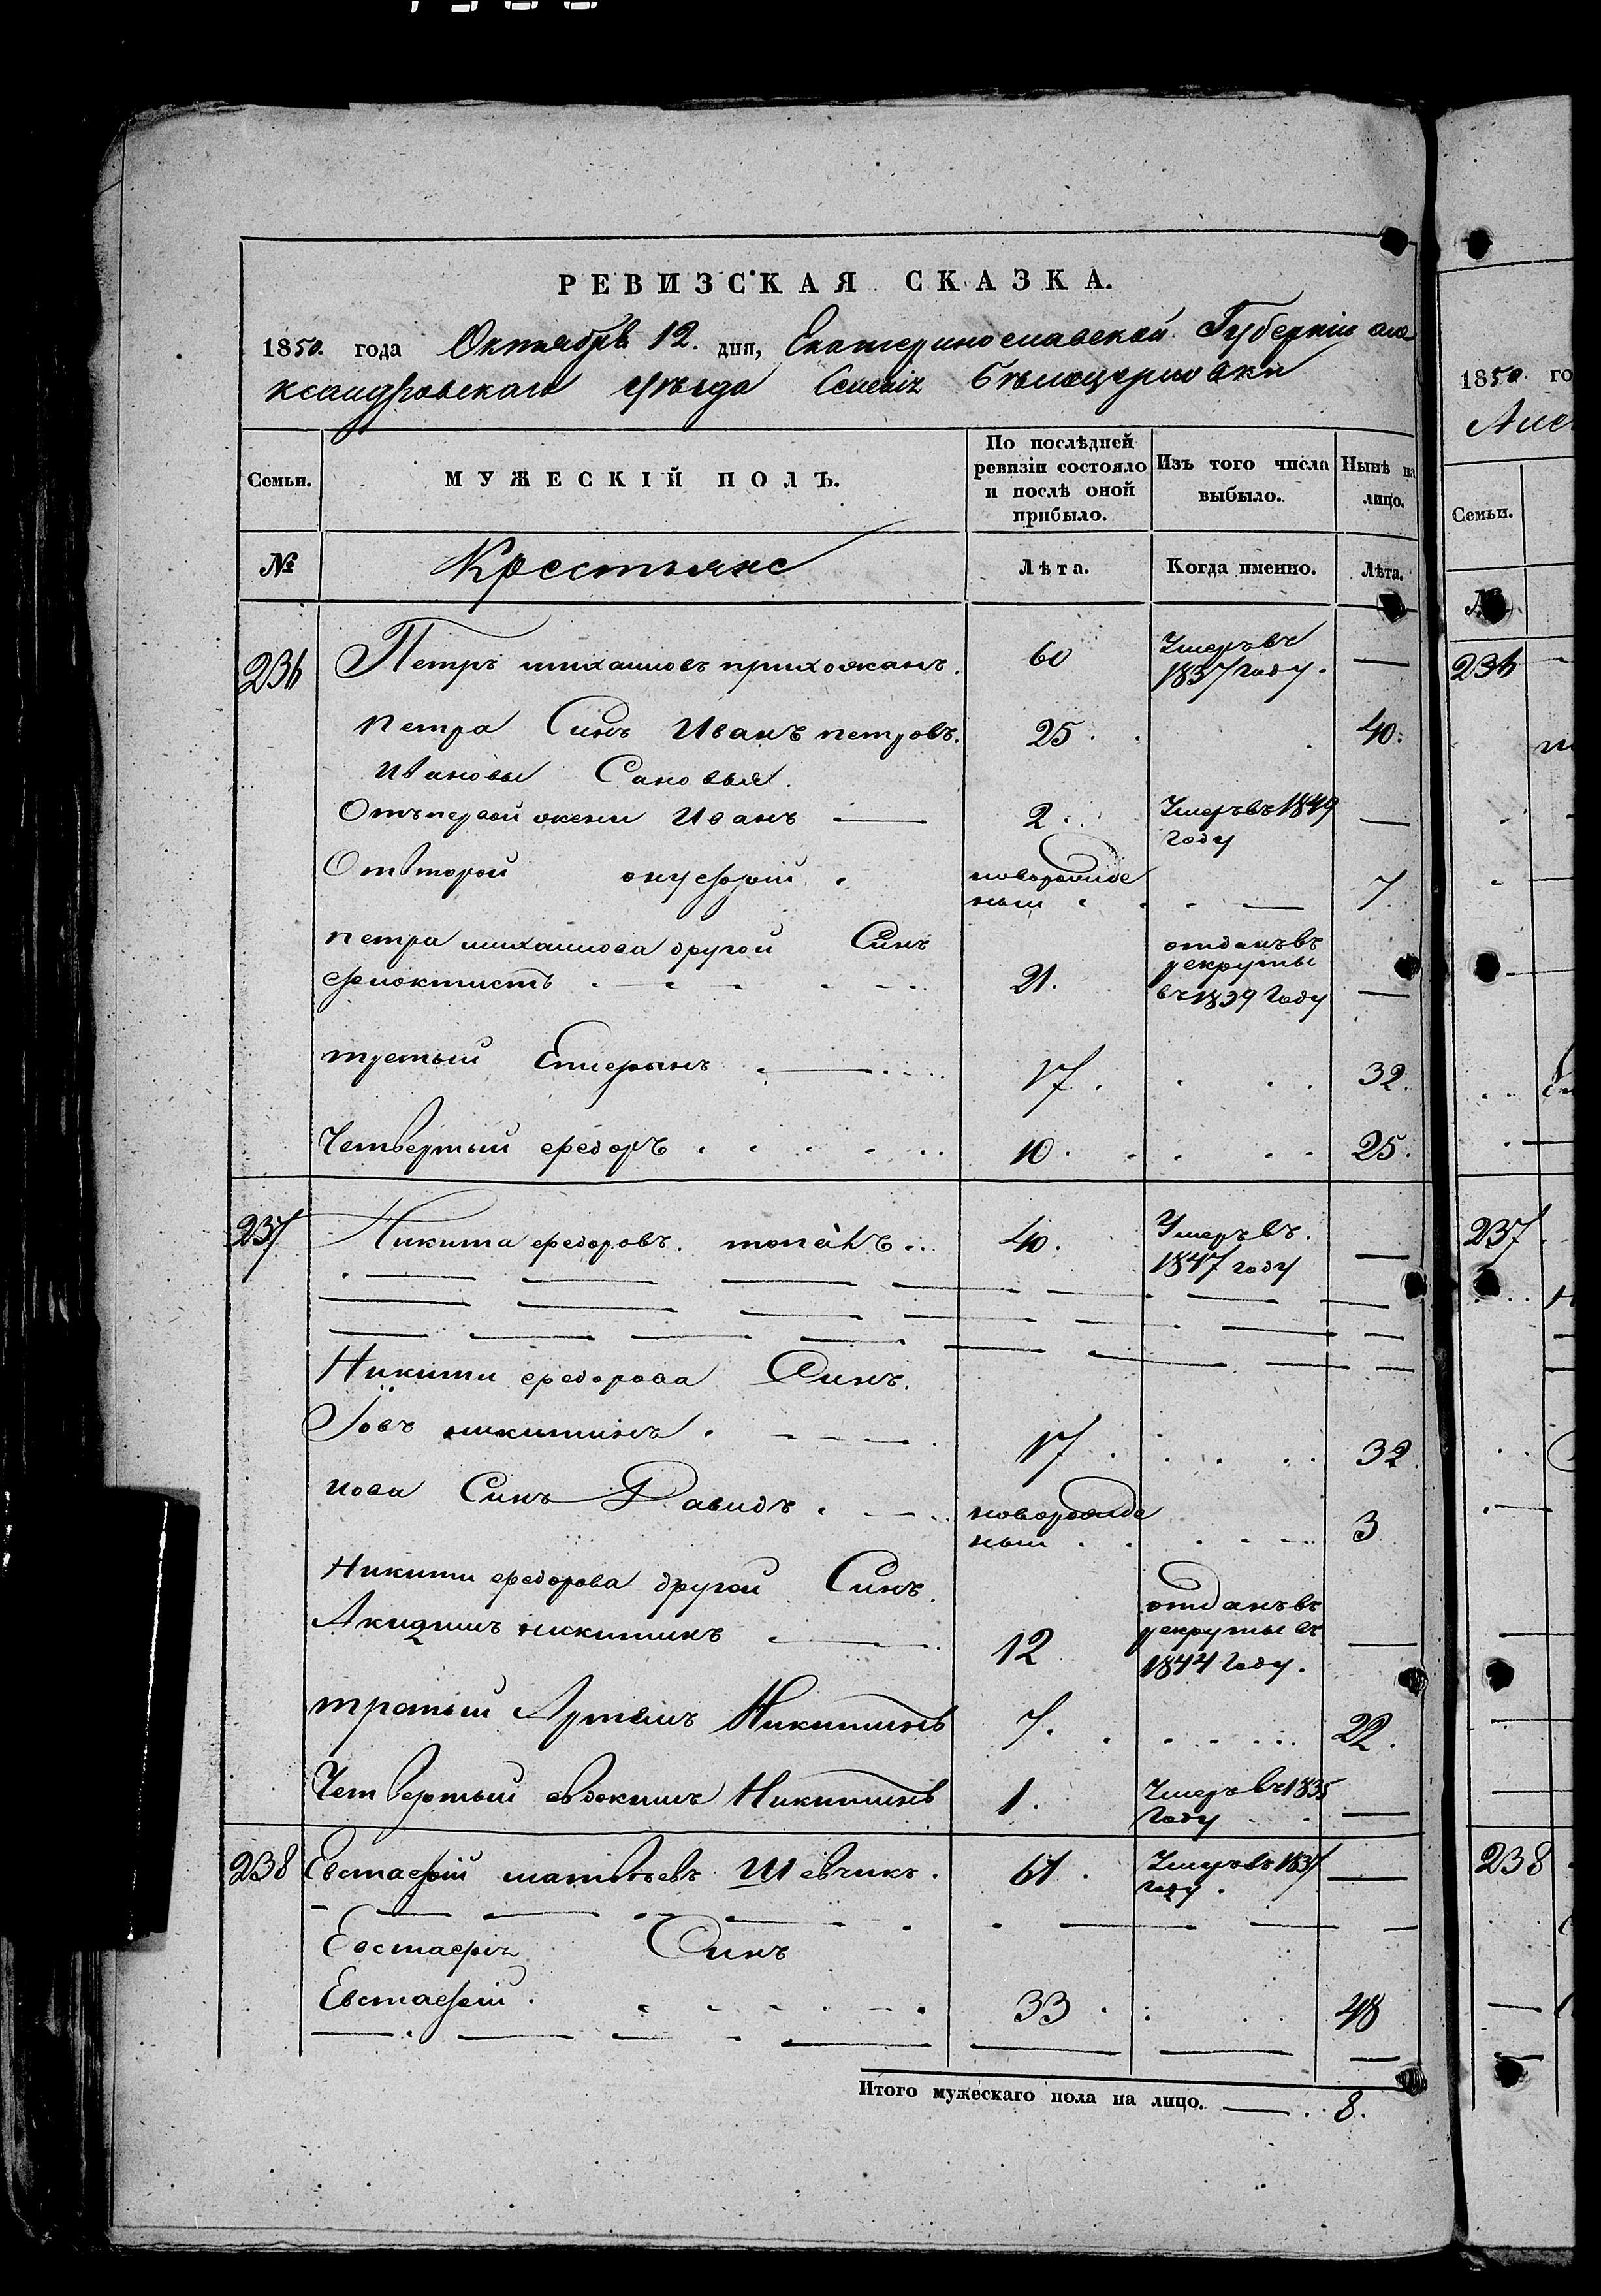 РЕВИЗСКАЯ СКАЗКА.
1850. года Октября 12. дня, Екатеринославской Губерніи але
ксандровскаго уѣзда Селенія бѣлоцерковки
Семьи.
МУЖЕСКІЙ ПОЛЪ.
По послѣдней ревизіи состояло и послѣ оной прибыло.
Изъ того числа выбыло.
Нынѣ на лицо.
№
Крестьяне
Лѣта.
Когда именно.
Лѣта.
236 Петръ михаиловъ прихожанъ. 60 Умеръ въ 1837 году. —
петра Синъ Иванъ петровъ. 25 40.
ивановы Сановья.
Отъ первой жени Иванъ — 2 Умеръ въ 1849 году —
От второй онуфрій новорожде ный — 7
петра михаилова другой Синъ
феоктистъ 21. отданъ въ рекруты въ 1839 году —
третьий Епифанъ 17. 32.
Четвертый федоръ 10. 25.
237 Никита федоровъ. топàкъ 40. Умеръ въ. 1847 году —
Никити федорова Синъ.
Іовъ никитинъ. 17. 32.
иова Синъ Давидъ. новорожде ный 3
Никити федорова другой Синъ.
никитинъ 12 отданъ въ рекруты въ 1844 году. —
третий Артемъ Никитинъ 7. 22.
Четвертый евдокимъ Никитинъ 1. Умеръ въ 1835 году —
238 Евстафій матвѣевъ Шевчикъ. 61. Умеръ въ 1837 году. —
Евстафія Синъ
Евстафій. 33 48
Итого мужескаго пола на лицо. — 8.
1850. го
Семьи.
236
237
238